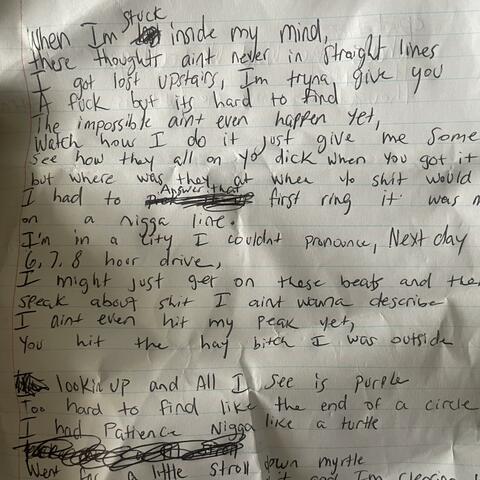 When I'm stuck inside my mind,
these thoughts aint never in straight lines
I got lost upstairs, Im tryna give you
A fuck but its hard to find
The impossible aint even happen yet,
Watch how I do it, just give me some
see how they all on yo dick when you got it
but where was they at when yo shit would
I had to Answer that first ring it was
on a nigga line.
I'm in a city I couldnt pronounce, Next day
6, 7, 8 hour drive,
I might just get on these beats and
speak about shit I aint wanna describe
I aint even hit my peak yet,
You hit the hay bitch I was outside
lookin up and All I see is purple
Too hard to find like the end of a circle
I had Patience Nigga like a turtle
Went for a little stroll down myrtle